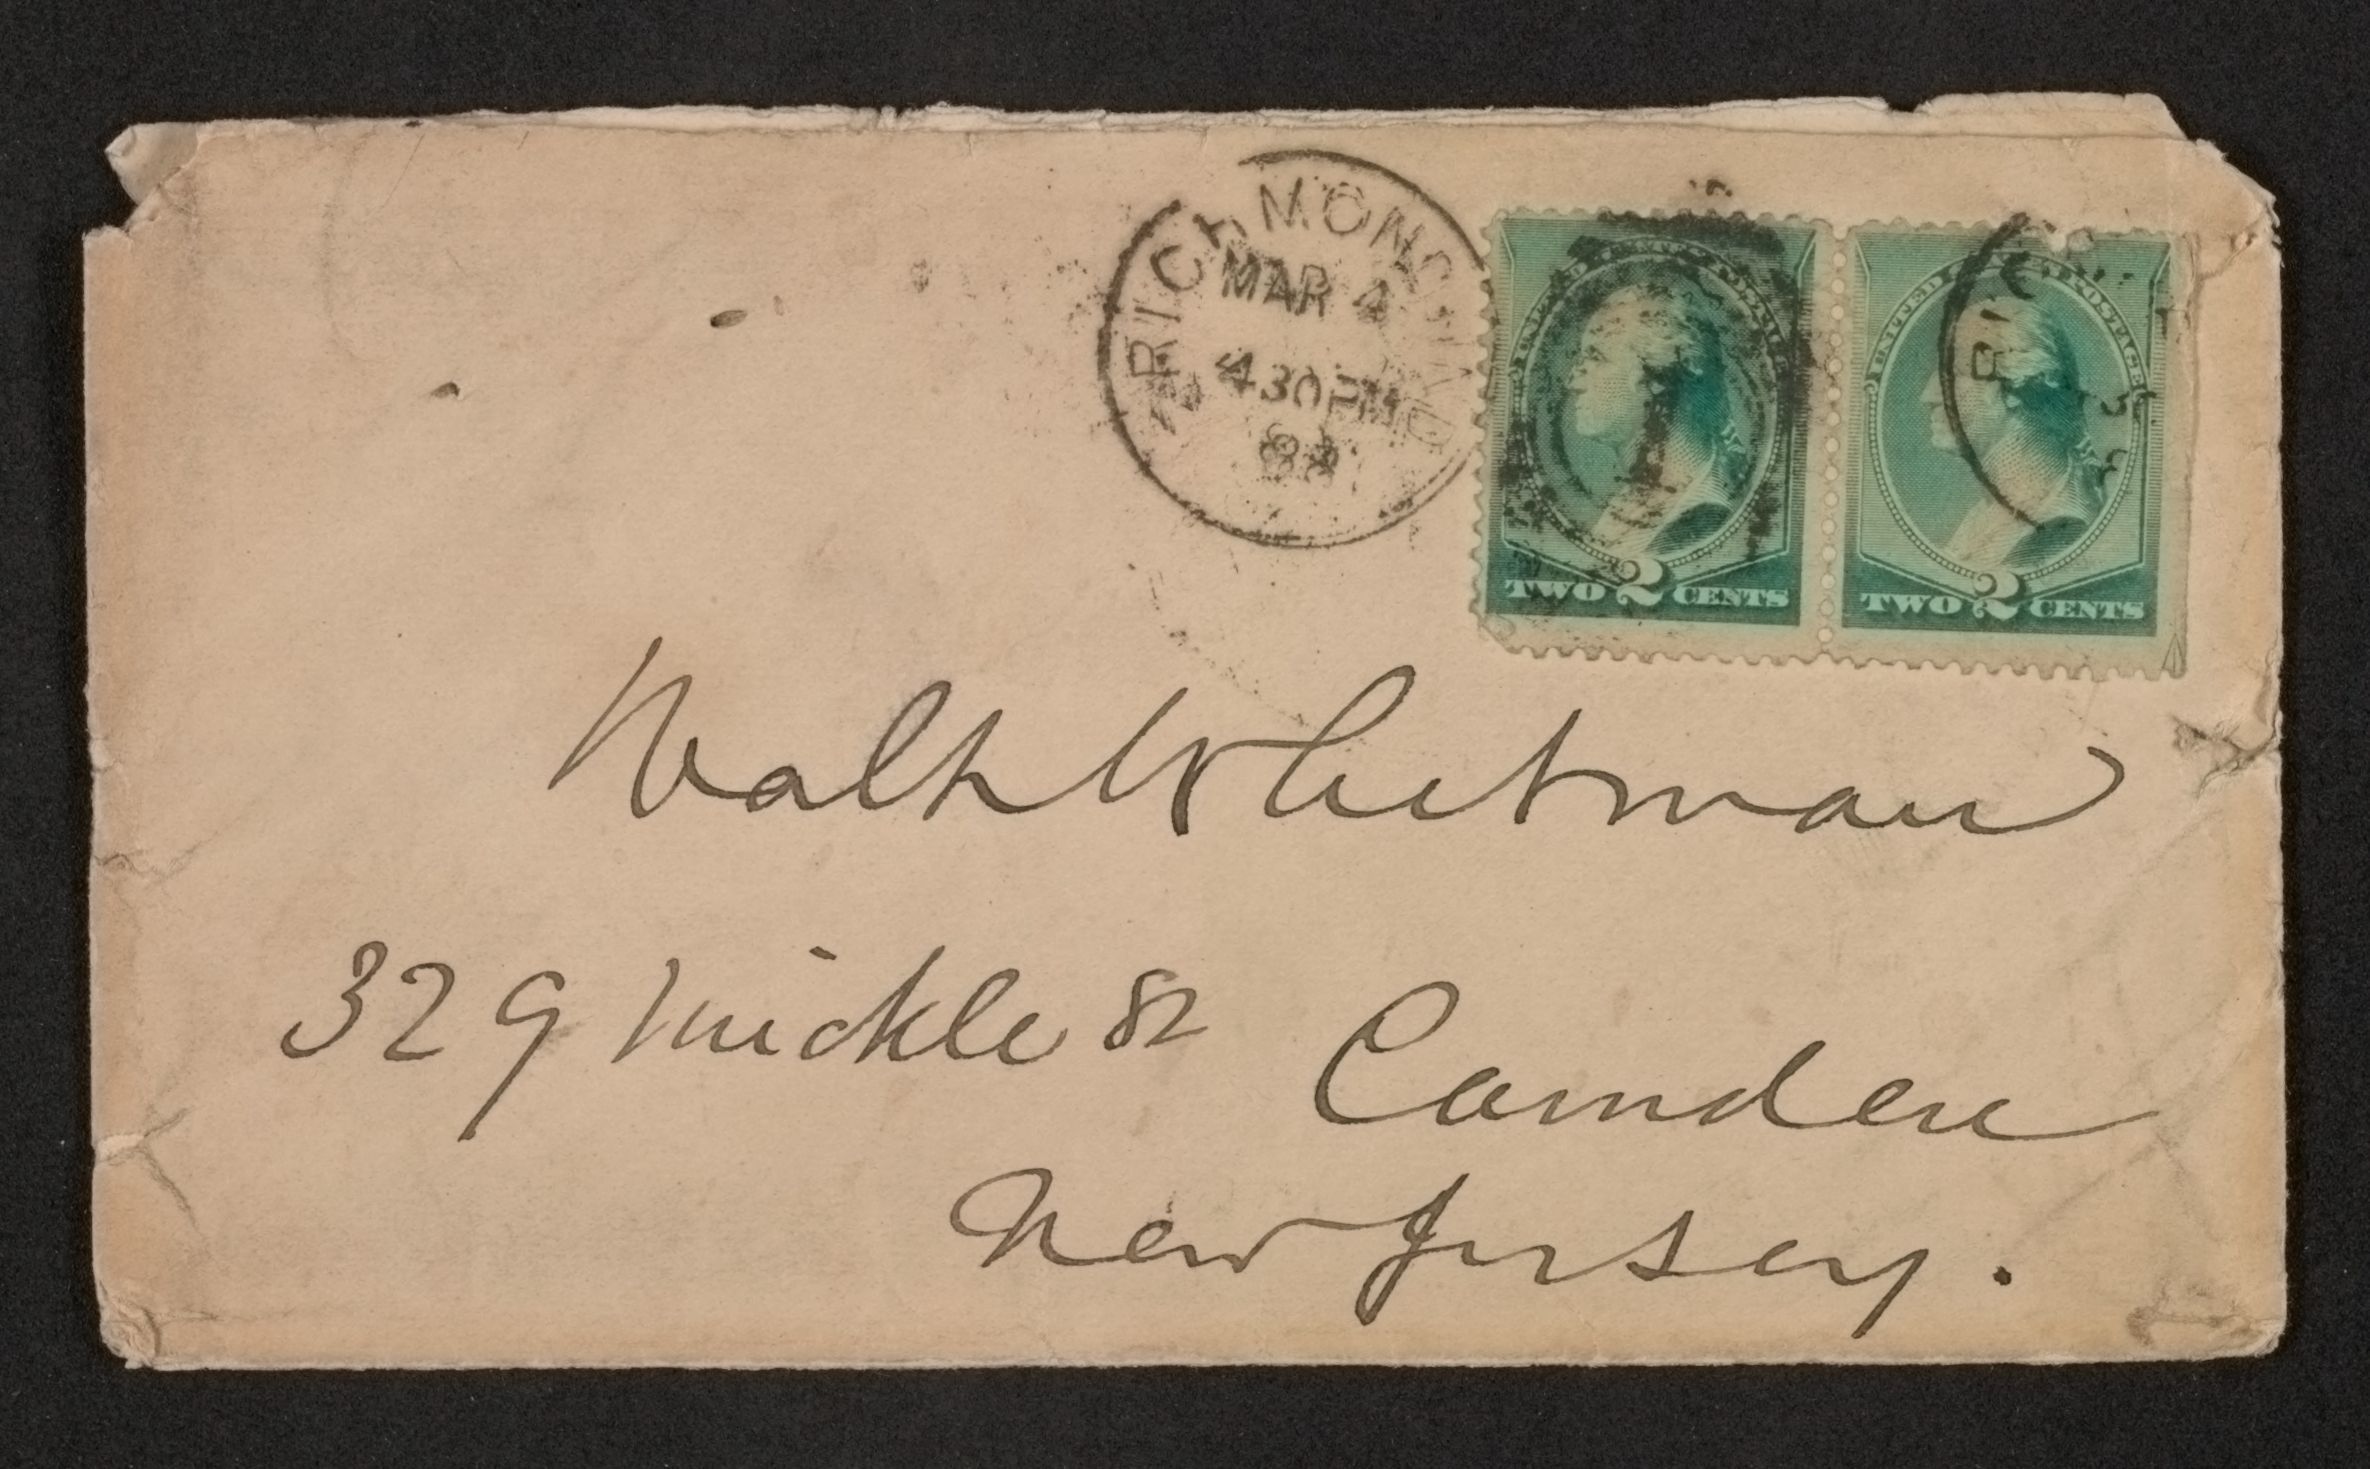 RICHMOND IND
MAR 4
430PM
88
UNITED STATES POSTAGE
TWO 2 CENTS
UNITED STATES POSTAGE
TWO 2 CENTS
Walt Whitman
329 Mickle St Camden
New Jersey.